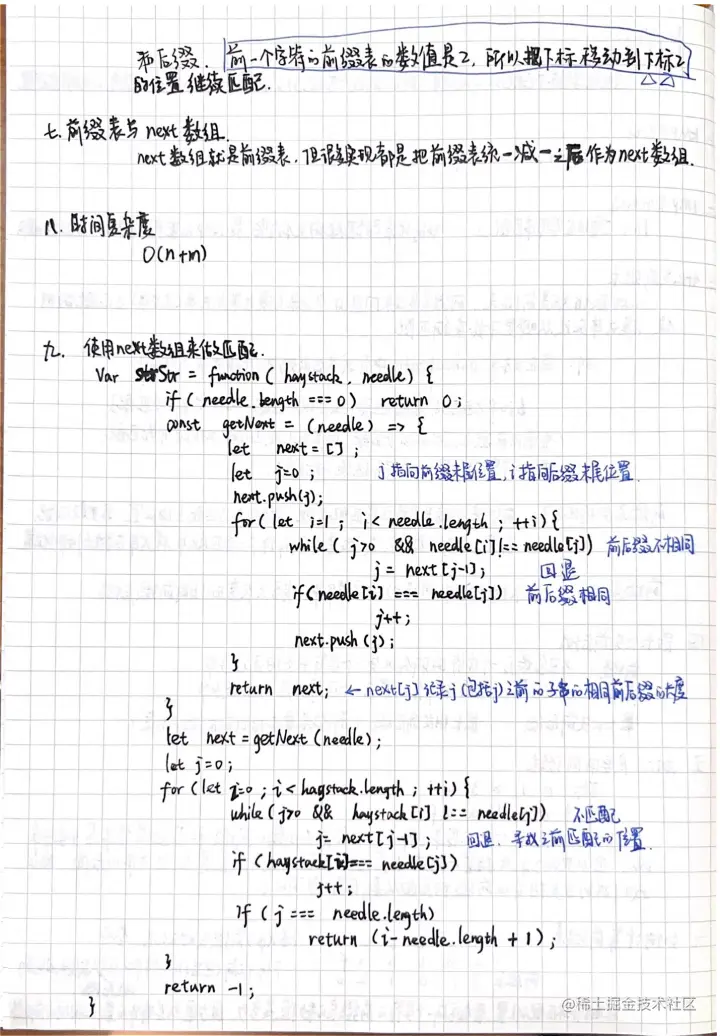 和后缀. 前一个字符的前缀表的数值是2, 所以把下标移动到下标2
的位置继续匹配.
七. 前缀表与 next 数组.
next 数组就是前缀表, 但很多实现都是把前缀表统一减一之后作为 next 数组.
八. 时间复杂度
O(n+m)
九. 使用next数组来做匹配.
Var strStr = function ( haystack, needle) {
if ( needle.length === 0) return 0;
const getNext = (needle) => {
let next = [] ;
let j=0 ; j 指向前缀末尾位置, i 指向后缀末尾位置.
next.push(j);
for( let i=1 ; i < needle.length ; ++i){
while ( j>0 && needle[i] !== needle[j]) 前后缀不相同
j = next [j-1] ; 回退
if(needle[i] === needle[j]) 前后缀相同
j++ ;
next.push (j) ;
}
return next; ← next[j] 记录 j (包括j) 之前的子串的相同前后缀的长度
}
let next = getNext (needle) ;
let j=0 ;
for (let i=0 ; i < haystack.length ; ++i) {
while (j>0 && haystack[i] !== needle[j]) 不匹配
j= next [j-1] ; 回退, 寻找之前匹配的位置.
if (haystack[i] === needle[j])
j++ ;
if ( j === needle.length)
return (i-needle.length + 1) ;
}
return -1 ;
}
@稀土掘金技术社区